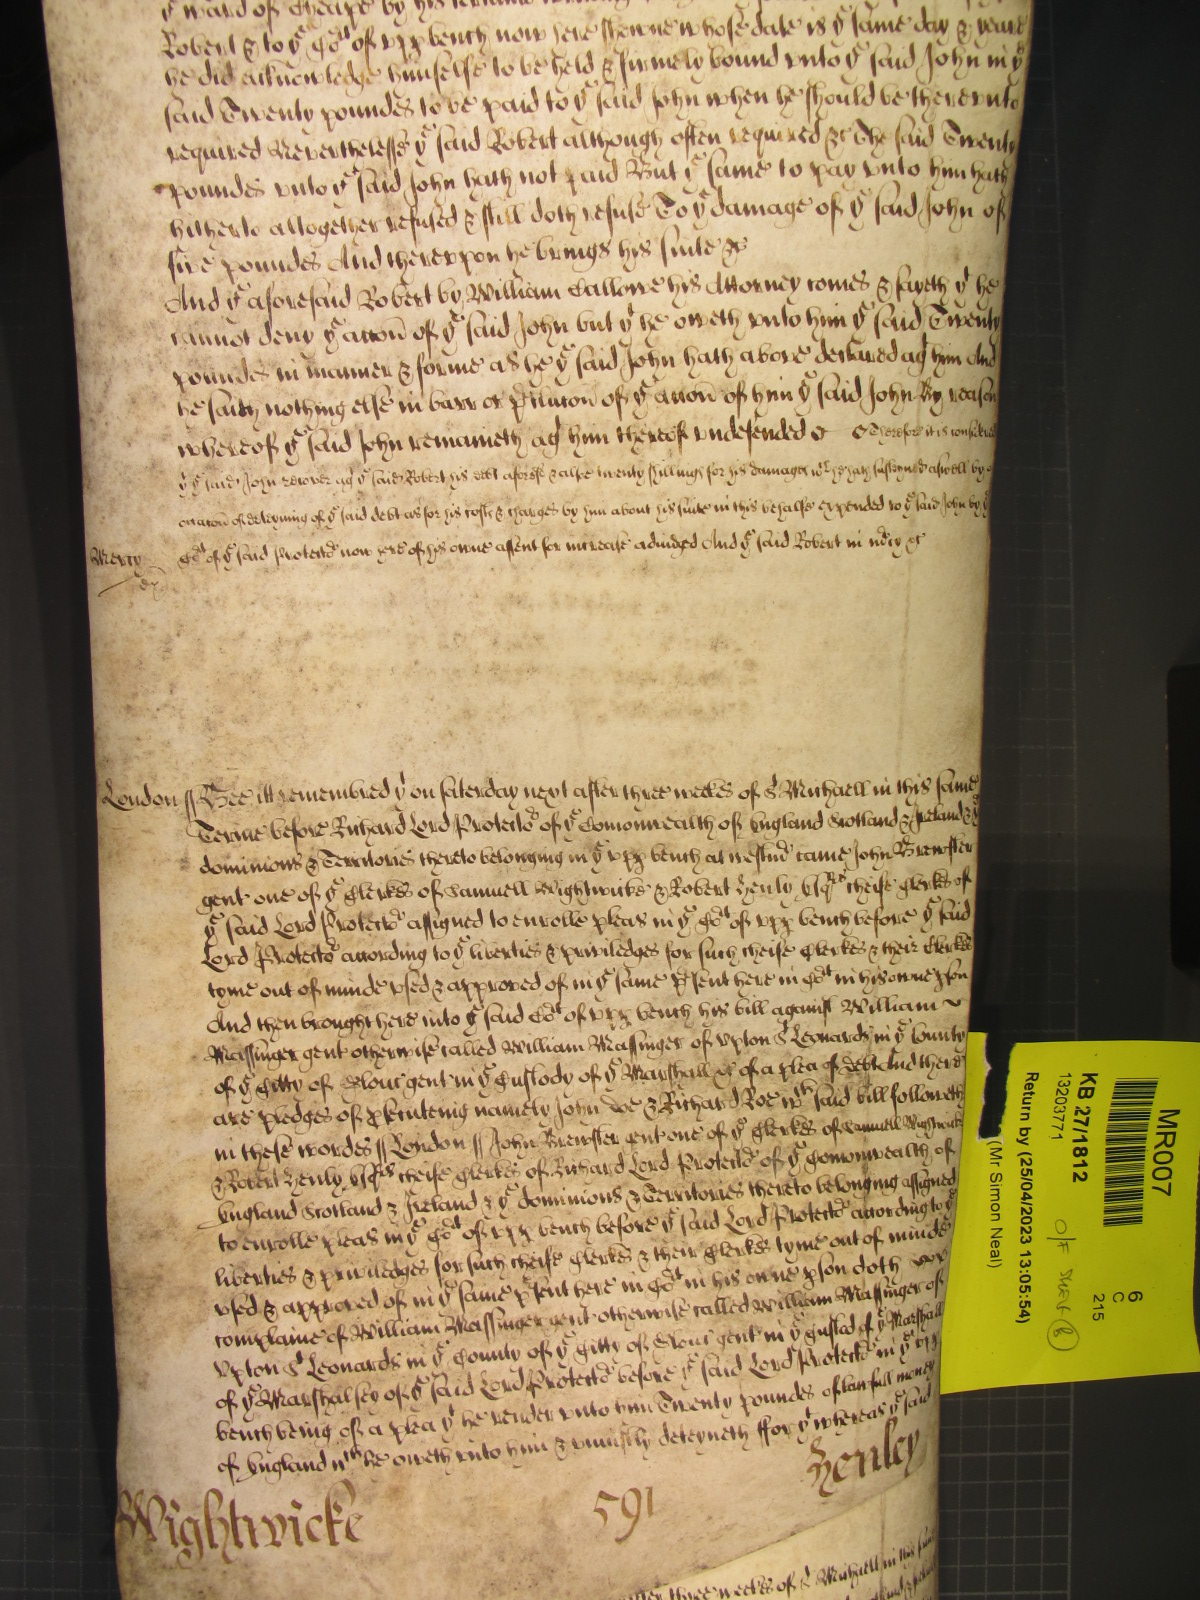 yͤ ward of Cheape by his
Robert & to yͤ Coͬt of vpp bench now here shewne whose date is yͤ same day & yeare
he did acknowledge himselfe to be held & firmely bound vnto yͤ said John in yͤ
said Twenty poundes to be paid to yͤ said John when he should be therevnto
required Neverthelesse yͤ said Robert although often required &c The said Twenty
poundes vnto yͤ said John hath not paid But yͤ same to pay vnto him hath
hitherto altogether refused & still doth refuse To yͤ damage of yͤ said John of
five poundes And therevpon he brings his suite &c
And yͤ aforesaid Robert by William Callowe his Attorney comes & sayeth yͭ he
cannot deny yͤ accon of yͤ said John but yͭ he oweth vnto him yͤ said Twenty
poundes in manner & forme as he yͤ said John hath above declared agͭ him And
he saith nothing else in barr or p̱clusion of yͤ accon of him yͤ said John By reason
whereof yͤ said John remaineth agͭ him thereof vndefended &c Therefore it is considered
yͭ yͤ said John recover agͭ yͤ said Robert his debt aforesͩ & alsoe twenty shillings for his damages wͨͪ he hath susteyned aswell by
occacon of deteyning of yͤ said debt as for his costs & charges by him about his suite in this behalfe expended to yͤ said John by yͤ
Coͬt of yͤ said Protector now here of his owne assent for increase adiudged And yͤ said Robert in mͬcy &c
Mercy
London // Bee itt remembred yͭ on saterday next after three weekes of Sͭ Michaell in this same
Terme before Richard Lord Protectoͬ of yͤ Comonwealth of England Scotland & Ireland & yͤ
dominions & Territories thereto belonging in yͤ vpp bench at westmͬ came John Brewster
gent one of yͤ Clerkes of Samuell Wightwicke & Robert Henly Esqͬˢ cheife Clerkes of
yͤ said Lord Protectoͬ assigned to enrolle pleas in yͤ Coͬt of vpp bench before yͤ said
Lord Protectoͬ according to yͤ liberties & priviledges for such cheife Clerkes & their Clerkes
tyme out of minde vsed & approved of in yͤ same p̱sent here in Coͬt in his owne p̱son
And then brought here into yͤ said Coͬt of vpp bench his bill against William
Massinger gent otherwise called William Massinger of Vpton Sͭ Leonards in yͤ County
of yͤ Citty of Glouc gent in yͤ Custody of yͤ Marshall &c of a plea of debt And there
are pledges of p̱secuteing namely John Doe & Richard Roe wͨͪ said bill followeth
in these wordes // London // John Brewster gent one of yͤ Clerkes of Samuell Wightwicke
& Robert Henly Esqͬˢ cheife Clerkes of Richard Lord Protectoͬ of yͤ Comonwealth of
England Scotland & Ireland & yͤ dominions & Territories thereto belonging assigned
to enrolle pleas in yͤ Coͬt of vpp bench before yͤ said Lord Protectoͬ according to yͤ
liberties & priviledges for such cheife Clerkes & their Clerkes tyme out of minde
vsed & approved of in yͤ same p̱sent here in Coͬt in his owne p̱son doth
complaine of William Massinger gent otherwise called William Massinger of
Vpton Sͭ Leonards in yͤ County of yͤ Citty of Glouc gent in yͤ Custod of yͤ Marshall
of yͤ Marshalsey of yͤ said Lord Protectoͬ before yͤ said Lord Protectoͬ in yͤ vpp
bench being of a plea yͭ he render vnto him Twenty poundes of lawfull money
of England wͨͪ he oweth vnto him & vniustly deteyneth ffor yͭ whereas yͤ said
Henley
Wightwicke
591
after three weekes of Sͭ Michaell in this same
MR007
6
C
215
KB 27/1812
13203771
(Mr Simon Neal)
Return by (25/04/2023 13:05:54)